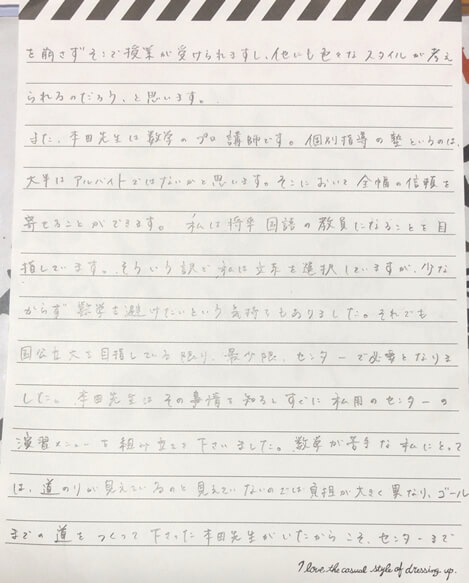 を崩さずそこで授業が受けられますし、他にも色々なスタイルが考え
られるのだろう、と思います。
また、本田先生は数学のプロ講師です。個別指導の塾というのは、
大半はアルバイトではないかと思います。そこにおいて全幅の信頼を
寄せることができます。私は将来国語の教員になることを目
指しています。そういう訳で私は文系を選択していますが、少な
からず数学を避けたいという気持ちもありました。それでも
国公立大を目指している限り、最少限、センターで必要となりま
した。本田先生はその事情を知るとすぐに私用のセンターの
演習メニューを組み立てて下さいました。数学が苦手な私にとって
は、道のりが見えているのと見えていないのでは負担が大きく異なり、ゴール
までの道をつくって下さった本田先生がいたからこそ、センターまで
I love the casual style of dressing up.